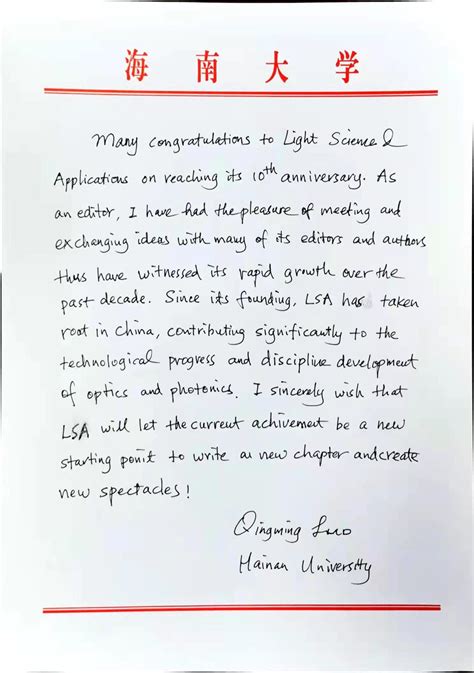 海南大学
Many congratulations to Light Science &
Applications on reaching its 10th anniversary. As
an editor, I have had the pleasure of meeting and
exchanging ideas with many of its editors and authors
thus have witnessed its rapid growth over the
past decade. Since its founding, LSA has taken
root in China, contributing significantly to the
technological progress and discipline development
of optics and photonics. I sincerely wish that
LSA will let the current achivement be a new
starting ponit to write a new chapter and create
new spectacles!
Qingming Luo
Hainan University